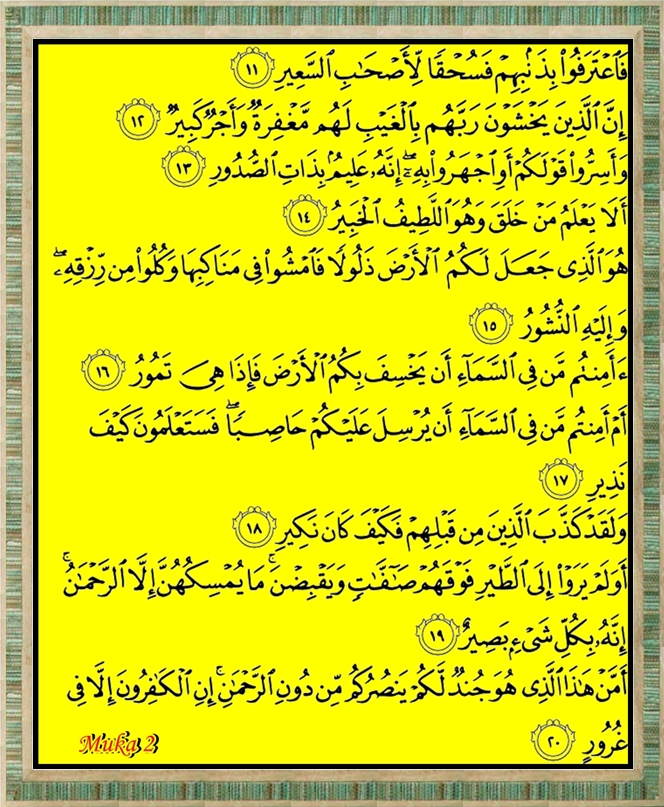 فَٱعْتَرَفُوا۟ بِذَنۢبِهِمْ فَسُحْقًا لِّأَصْحَٰبِ ٱلسَّعِيرِ ١١
إِنَّ ٱلَّذِينَ يَخْشَوْنَ رَبَّهُم بِٱلْغَيْبِ لَهُم مَّغْفِرَةٌ وَأَجْرٌ كَبِيرٌ ١٢
وَأَسِرُّوا۟ قَوْلَكُمْ أَوِ ٱجْهَرُوا۟ بِهِۦٓ ۖ إِنَّهُۥ عَلِيمٌۢ بِذَاتِ ٱلصُّدُورِ ١٣
أَلَا يَعْلَمُ مَنْ خَلَقَ وَهُوَ ٱللَّطِيفُ ٱلْخَبِيرُ ١٤
هُوَ ٱلَّذِى جَعَلَ لَكُمُ ٱلْأَرْضَ ذَلُولًا فَٱمْشُوا۟ فِى مَنَاكِبِهَا وَكُلُوا۟ مِن رِّزْقِهِۦ ۖ
وَإِلَيْهِ ٱلنُّشُورُ ١٥
ءَأَمِنتُم مَّن فِى ٱلسَّمَآءِ أَن يَخْسِفَ بِكُمُ ٱلْأَرْضَ فَإِذَا هِىَ تَمُورُ ١٦
أَمْ أَمِنتُم مَّن فِى ٱلسَّمَآءِ أَن يُرْسِلَ عَلَيْكُمْ حَاصِبًا ۖ فَسَتَعْلَمُونَ كَيْفَ
نَذِيرِ ١٧
وَلَقَدْ كَذَّبَ ٱلَّذِينَ مِن قَبْلِهِمْ فَكَيْفَ كَانَ نَكِيرِ ١٨
أَوَلَمْ يَرَوْا۟ إِلَى ٱلطَّيْرِ فَوْقَهُمْ صَٰٓفَّٰتٍ وَيَقْبِضْنَ ۚ مَا يُمْسِكُهُنَّ إِلَّا ٱلرَّحْمَٰنُ ۚ
إِنَّهُۥ بِكُلِّ شَىْءٍۭ بَصِيرٌ ١٩
أَمَّنْ هَٰذَا ٱلَّذِى هُوَ جُندٌ لَّكُمْ يَنصُرُكُم مِّن دُونِ ٱلرَّحْمَٰنِ ۚ إِنِ ٱلْكَٰفِرُونَ إِلَّا فِى
غُرُورٍ ٢٠
Muka 2